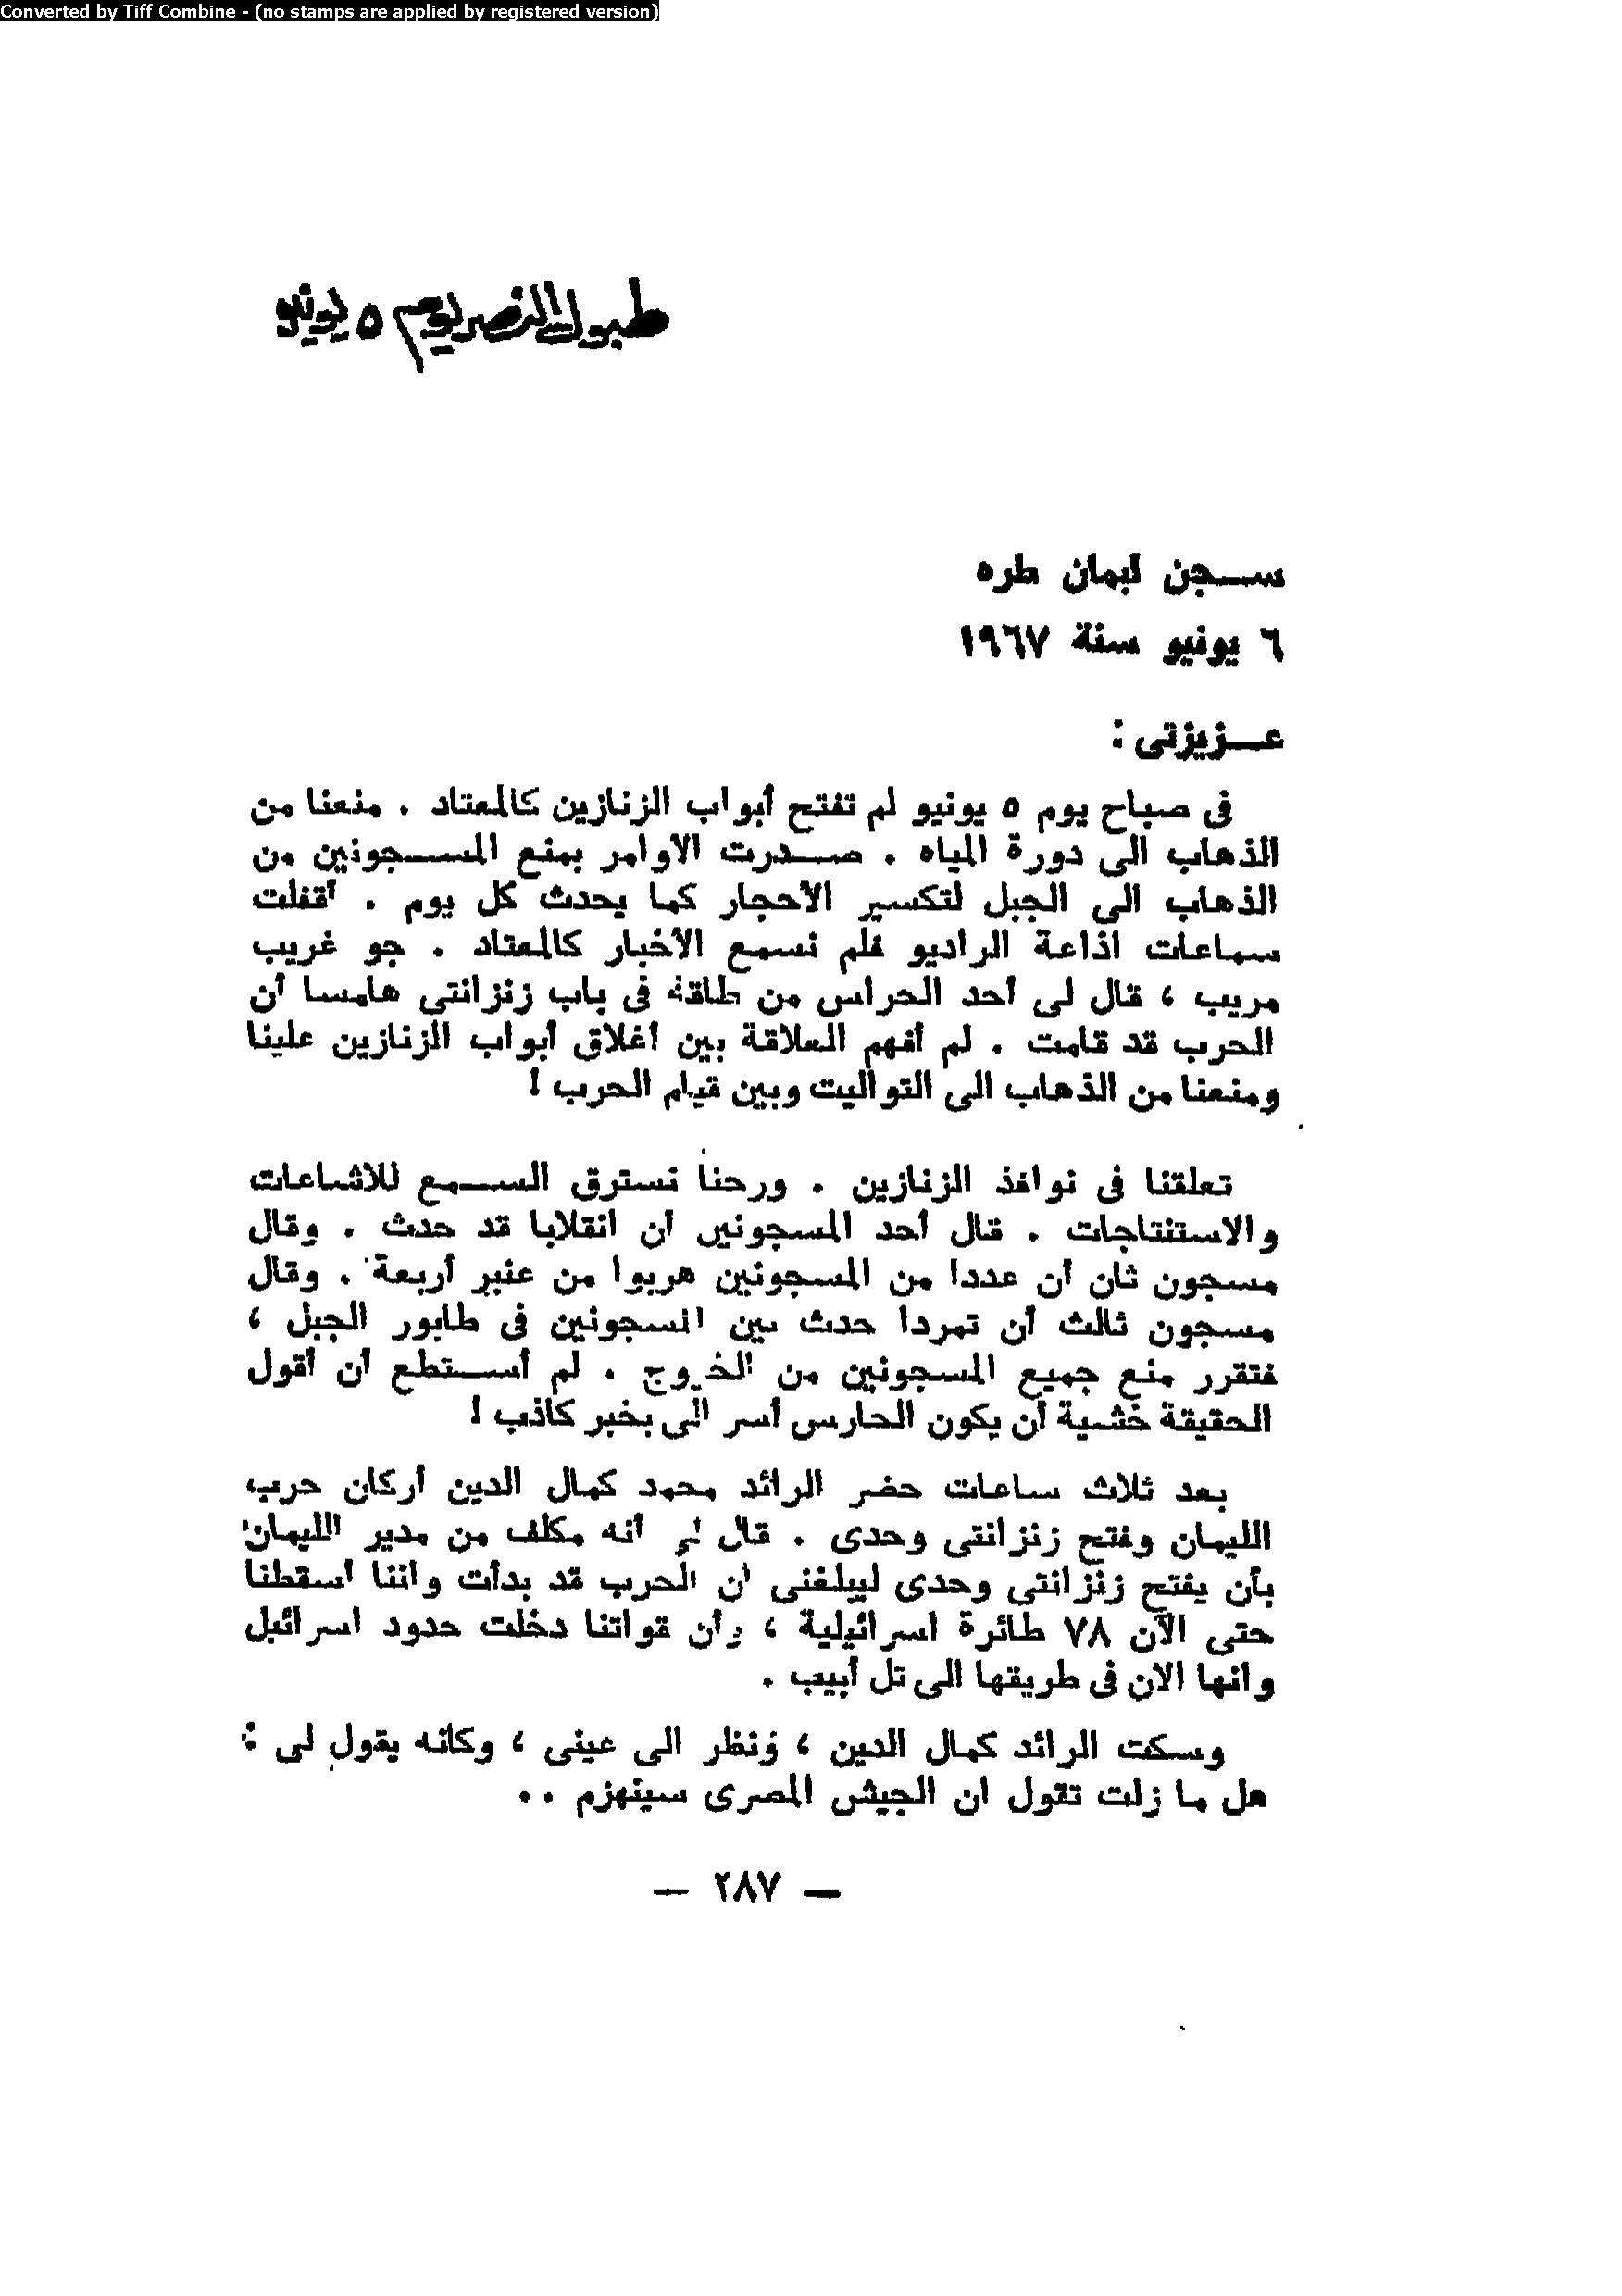 Converted by Tiff Combine - (no stamps are applied by registered version)
طبول النصر يوم ٥ يونيو
ســجن ليمان طره
٦ يونيو سنة ١٩٦٧
عــزيزتى :
فى صباح يوم ٥ يونيو لم تفتح أبواب الزنازين كالمعتاد . منعنا من
الذهاب الى دورة المياه . صــدرت الاوامر بمنع المســجونين من
الذهاب الى الجبل لتكسير الأحجار كما يحدث كل يوم . أقفلت
سماعات اذاعة الراديو فلم نسمع الأخبار كالمعتاد . جو غريب
مريب ، قال لى أحد الحراس من طاقة فى باب زنزانتى هامسا أن
الحرب قد قامت . لم أفهم العلاقة بين أغلاق أبواب الزنازين علينا
ومنعنا من الذهاب الى التواليت وبين قيام الحرب !
تعلقنا فى نوافذ الزنازين . ورحنا نسترق الســمع للاشاعات
والاستنتاجات . قال أحد المسجونين أن انقلابا قد حدث . وقال
مسجون ثان أن عددا من المسجونين هربوا من عنبر أربعة . وقال
مسجون ثالث أن تمردا حدث بين المسجونين فى طابور الجبل ،
فتقرر منع جميع المسجونين من الخروج . لم أســتطع أن أقول
الحقيقة خشية أن يكون الحارس أسر الى بخبر كاذب !
بعد ثلاث ساعات حضر الرائد محمد كمال الدين أركان حرب
الليمان وفتح زنزانتى وحدى . قال لى أنه مكلف من مدير الليمان
بأن يفتح زنزانتى وحدى ليبلغنى أن الحرب قد بدأت واننا أسقطنا
حتى الآن ٧٨ طائرة اسرائيلية ، وأن قواتنا دخلت حدود اسرائيل
وانها الان فى طريقها الى تل أبيب .
وسكت الرائد كمال الدين ، ونظر الى عينى ، وكانه يقول لى :
هل ما زلت تقول ان الجيش المصرى سينهزم . .
— ٢٨٧ —